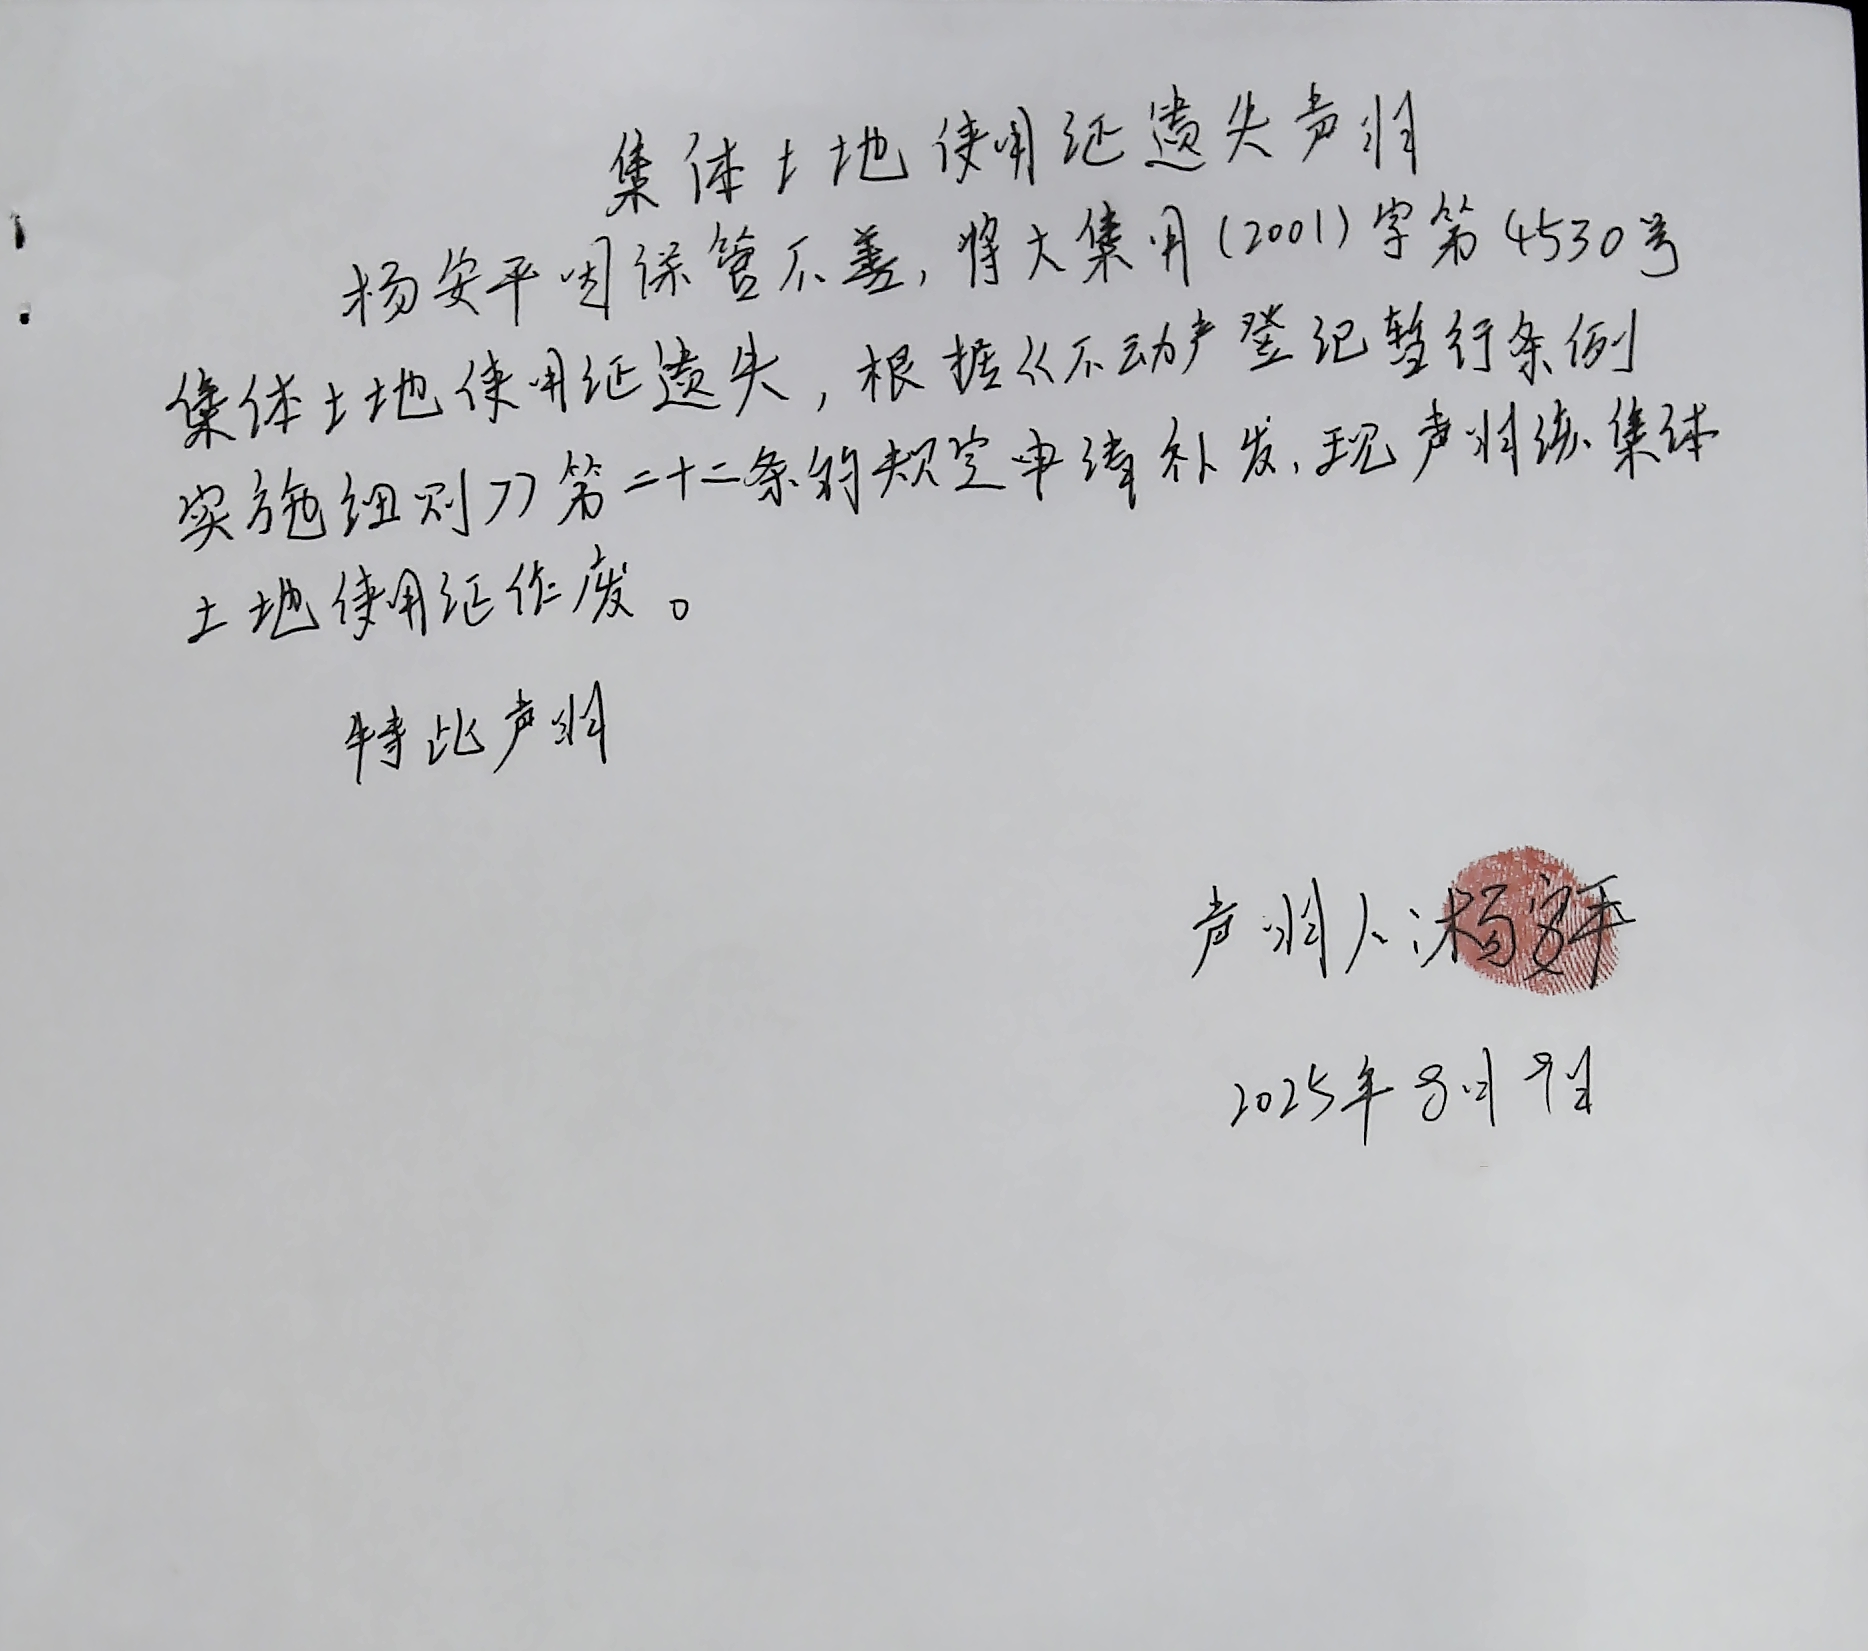 集体土地使用证遗失声明
杨安平因保管不善,将大集用(2001)字第4530号
集体土地使用证遗失,根据《不动产登记暂行条例
实施细则》第二十二条的规定申请补发,现声明该集体
土地使用证作废。
特此声明
声明人:杨安平
2025年8月9日